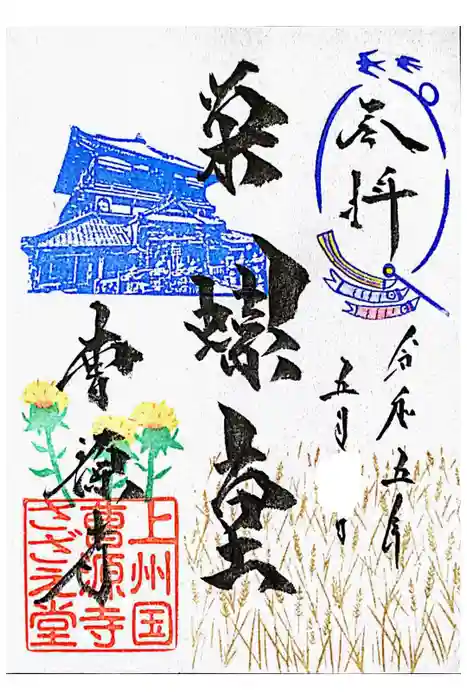 参拝
令和五年
五月 日
栄螺堂
曹源寺
上州国
曹源寺
さざえ堂